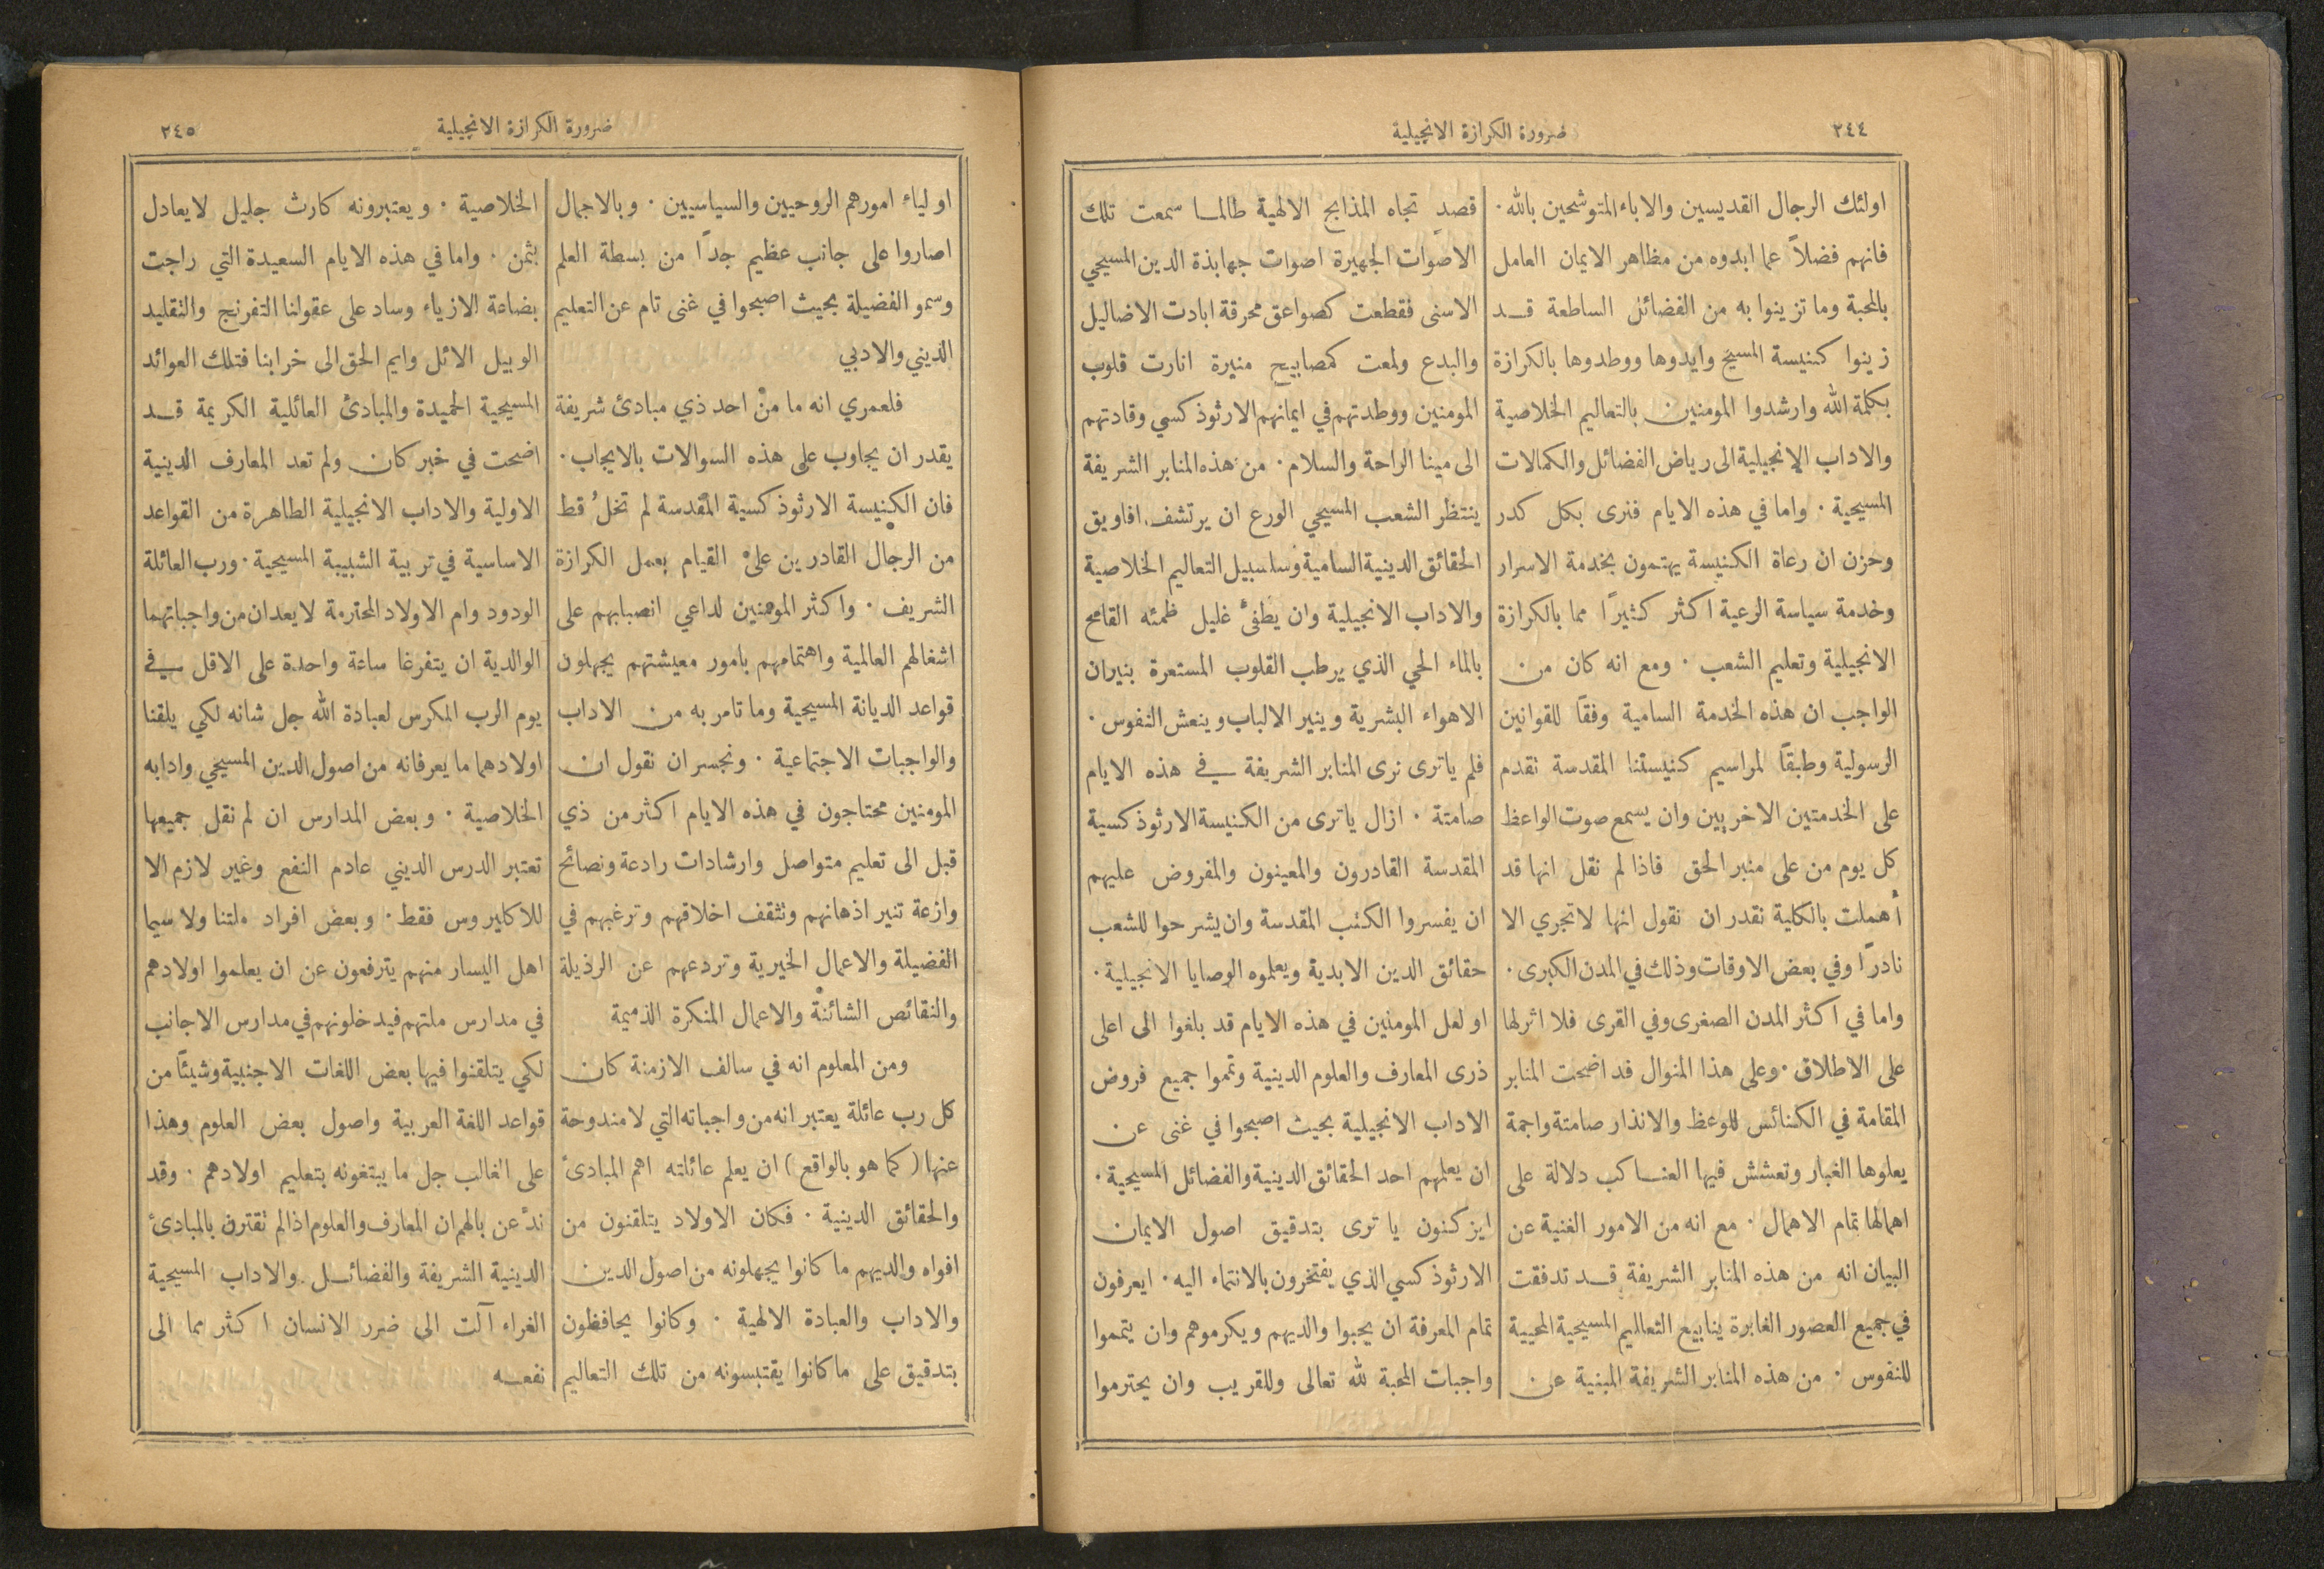 ٢٤٤
ضرورة الكرازة الانجيلية
اولئك الرجال القديسين والاباء المتوشحين بالله .
فانهم فضلاً عما ابدوه من مظاهر الايمان العامل
بالمحبة وما تزينوا به من الفضائل الساطعة قد
زينوا كنيسة المسيح وايدوها ووطدوها بالكرازة
بكلمة الله وارشدوا المومنين بالتعاليم الخلاصية
والاداب الانجيلية الى رياض الفضائل والكمالات
المسيحية . واما في هذه الايام فنرى بكل كدر
وحزن ان رعاة الكنيسة يهتمون بخدمة الاسرار
وخدمة سياسة الرعية اكثر كثيرًا مما بالكرازة
الانجيلية وتعليم الشعب . ومع انه كان من
الواجب ان هذه الخدمة السامية وفقًا للقوانين
الرسولية وطبقًا لمراسيم كنيستنا المقدسة تقدم
على الخدمتين الاخريين وان يسمع صوت الواعظ
كل يوم من على منبر الحق فاذا لم نقل انها قد
أُهملت بالكلية نقدر ان نقول انها لا تجري الا
نادرًا وفي بعض الاوقات وذلك في المدن الكبرى .
واما في اكثر المدن الصغرى وفي القرى فلا اثر لها
على الاطلاق . وعلى هذا المنوال قد اضحت المنابر
المقامة في الكنائس للوعظ والانذار صامتة واجمة
يعلوها الغبار وتعشش فيها العناكب دلالة على
اهمالها تمام الاهمال . مع انه من الامور الغنية عن
البيان انه من هذه المنابر الشريفة قد تدفقت
في جميع العصور الغابرة ينابيع التعاليم المسيحية المحيية
للنفوس . من هذه المنابر الشريفة المبنية عن
قصدٍ تجاه المذابح الالهية طالما سمعت تلك
الاصوات الجهيرة اصوات جهابذة الدين المسيحي
الاسنى فقطعت كصواعق محرقة ابادت الاضاليل
والبدع ولمعت كمصابيح منيرة انارت قلوب
المومنين ووطدتهم في ايمانهم الارثوذكسي وقادتهم
الى مينا الراحة والسلام . من هذه المنابر الشريفة
ينتظر الشعب المسيحي الورع ان يرتشف افاويق
الحقائق الدينية السامية وسلسبيل التعاليم الخلاصية
والاداب الانجيلية وان يطفئ غليل ظمئه القامح
بالماء الحي الذي يرطب القلوب المستعرة بنيران
الاهواء البشرية وينير الالباب وينعش النفوس .
فلم ياترى نرى المنابر الشريفة في هذه الايام
صامتة . ازال ياترى من الكنيسة الارثوذكسية
المقدسة القادرون والمعينون والمفروض عليهم
ان يفسروا الكتب المقدسة وان يشرحوا للشعب
حقائق الدين الابدية ويعلموه الوصايا الانجيلية .
او لعل المومنين في هذه الايام قد بلغوا الى اعلى
ذرى المعارف والعلوم الدينية وتمموا جميع فروض
الاداب الانجيلية بحيث اصبحوا في غنى عن
ان يعلمهم احد الحقائق الدينية والفضائل المسيحية .
ايزكنون يا ترى بتدقيق اصول الايمان
الارثوذكسي الذي يفتخرون بالانتماء اليه . ايعرفون
تمام المعرفة ان يحبوا والديهم ويكرموهم وان يتمموا
واجبات المحبة لله تعالى وللقريب وان يحترموا
ضرورة الكرازة الانجيلية
٢٤٥
اولياء امورهم الروحيين والسياسيين . وبالاجمال
اصاروا على جانب عظيم جدًا من بسطة العلم
وسمو الفضيلة بحيث اصبحوا في غنى تام عن التعليم
الديني والادبي
فلعمري انه ما من احد ذي مبادئ شريفة
يقدر ان يجاوب على هذه السوالات بالايجاب .
فان الكنيسة الارثوذكسية المقدسة لم تخلُ قط
من الرجال القادرين على القيام بعمل الكرازة
الشريف . واكثر المومنين لداعي انصبابهم على
اشغالهم العالمية واهتمامهم بامور معيشتهم يجهلون
قواعد الديانة المسيحية وما تامر به من الاداب
والواجبات الاجتماعية . ونجسر ان نقول ان
المومنين محتاجون في هذه الايام اكثر من ذي
قبل الى تعليم متواصل وارشادات رادعة ونصائح
وازعة تنير اذهانهم وتثقف اخلاقهم وترغبهم في
الفضيلة والاعمال الخيرية وتردعهم عن الرذيلة
والنقائص الشائنة والاعمال المنكرة الذميمة
ومن المعلوم انه في سالف الازمنة كان
كل رب عائلة يعتبر انه من واجباته التي لا مندوحة
عنها (كما هو بالواقع) ان يعلم عائلته اهم المبادئ
والحقائق الدينية . فكان الاولاد يتلقنون من
افواه والديهم ما كانوا يجهلونه من اصول الدين
والاداب والعبادة الالهية . وكانوا يحافظون
بتدقيق على ما كانوا يقتبسونه من تلك التعاليم
الخلاصية . ويعتبرونه كارث جليل لا يعادل
بثمن . واما في هذه الايام السعيدة التي راجت
بضاعة الازياء وساد على عقولنا التفرنج والتقليد
الوبيل الائل وايم الحق الى خرابنا فتلك العوائد
المسيحية الحميدة والمبادئ العائلية الكريمة قد
اضحت في خبر كان ولم تعد المعارف الدينية
الاولية والاداب الانجيلية الطاهرة من القواعد
الاساسية في تربية الشبيبة المسيحية . ورب العائلة
الودود وام الاولاد المحترمة لا يعدان من واجباتهما
الوالدية ان يتفرغا ساعة واحدة على الاقل في
يوم الرب المكرس لعبادة الله جل شانه لكي يلقنا
اولادهما ما يعرفانه من اصول الدين المسيحي وادابه
الخلاصية . وبعض المدارس ان لم نقل جميعها
تعتبر الدرس الديني عادم النفع وغير لازم الا
للاكليروس فقط . وبعض افراد ملتنا ولا سيما
اهل اليسار منهم يترفعون عن ان يعلموا اولادهم
في مدارس ملتهم فيدخلونهم في مدارس الاجانب
لكي يتلقنوا فيها بعض اللغات الاجنبية وشيئًا من
قواعد اللغة العربية واصول بعض العلوم وهذا
على الغالب جل ما يبتغونه بتعليم اولادهم . وقد
ندَّ عن بالهم ان المعارف والعلوم اذا لم تقترن بالمبادئ
الدينية الشريفة والفضائل والاداب المسيحية
الغراء آلت الى ضرر الانسان اكثر مما الى
نفعه